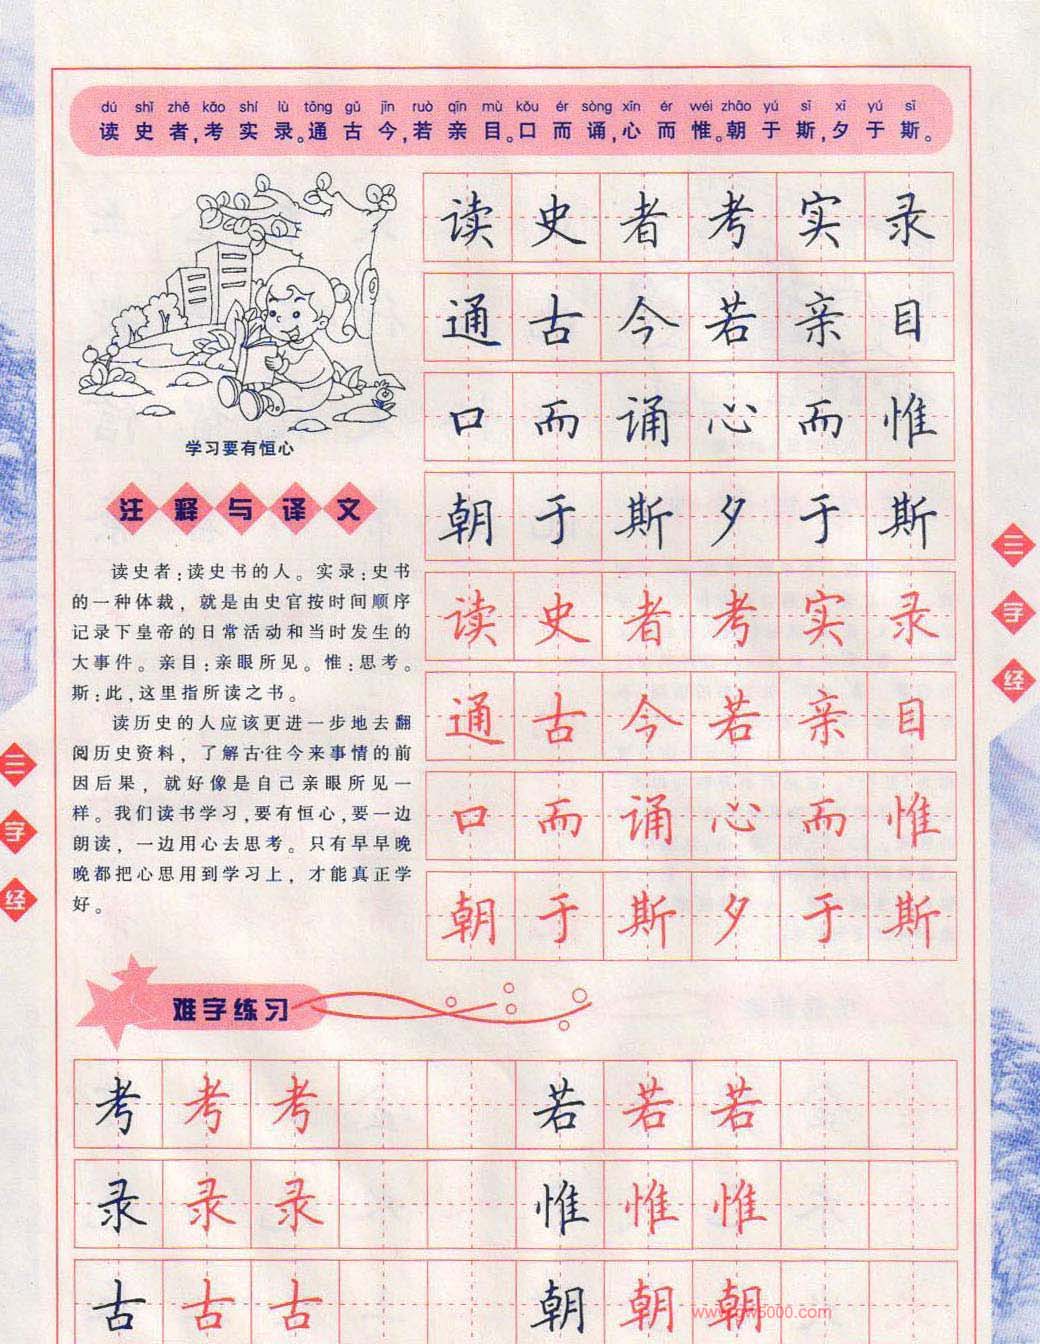 dú shǐ zhě kǎo shí lù tōng gǔ jīn ruò qīn mù kǒu ér sòng xīn ér wéi zhāo yú sī xī yú sī
读史者,考实录。通古今,若亲目。口而诵,心而惟。朝于斯,夕于斯。
学习要有恒心
注释与译文
读史者:读史书的人。实录:史书
的一种体裁，就是由史官按时间顺序
记录下皇帝的日常活动和当时发生的
大事件。亲目:亲眼所见。惟:思考。
斯:此,这里指所读之书。
读历史的人应该更进一步地去翻
阅历史资料，了解古往今来事情的前
因后果，就好像是自己亲眼所见一
样。我们读书学习,要有恒心,要一边
朗读，一边用心去思考。只有早早晚
晚都把心思用到学习上，才能真正学
好。
读史者考实录
通古今若亲目
口而诵心而惟
朝于斯夕于斯
读史者考实录
通古今若亲目
口而诵心而惟
朝于斯夕于斯
三字经
三字经
难字练习
考考考 若若若
录录录 惟惟惟
古古古 朝朝朝